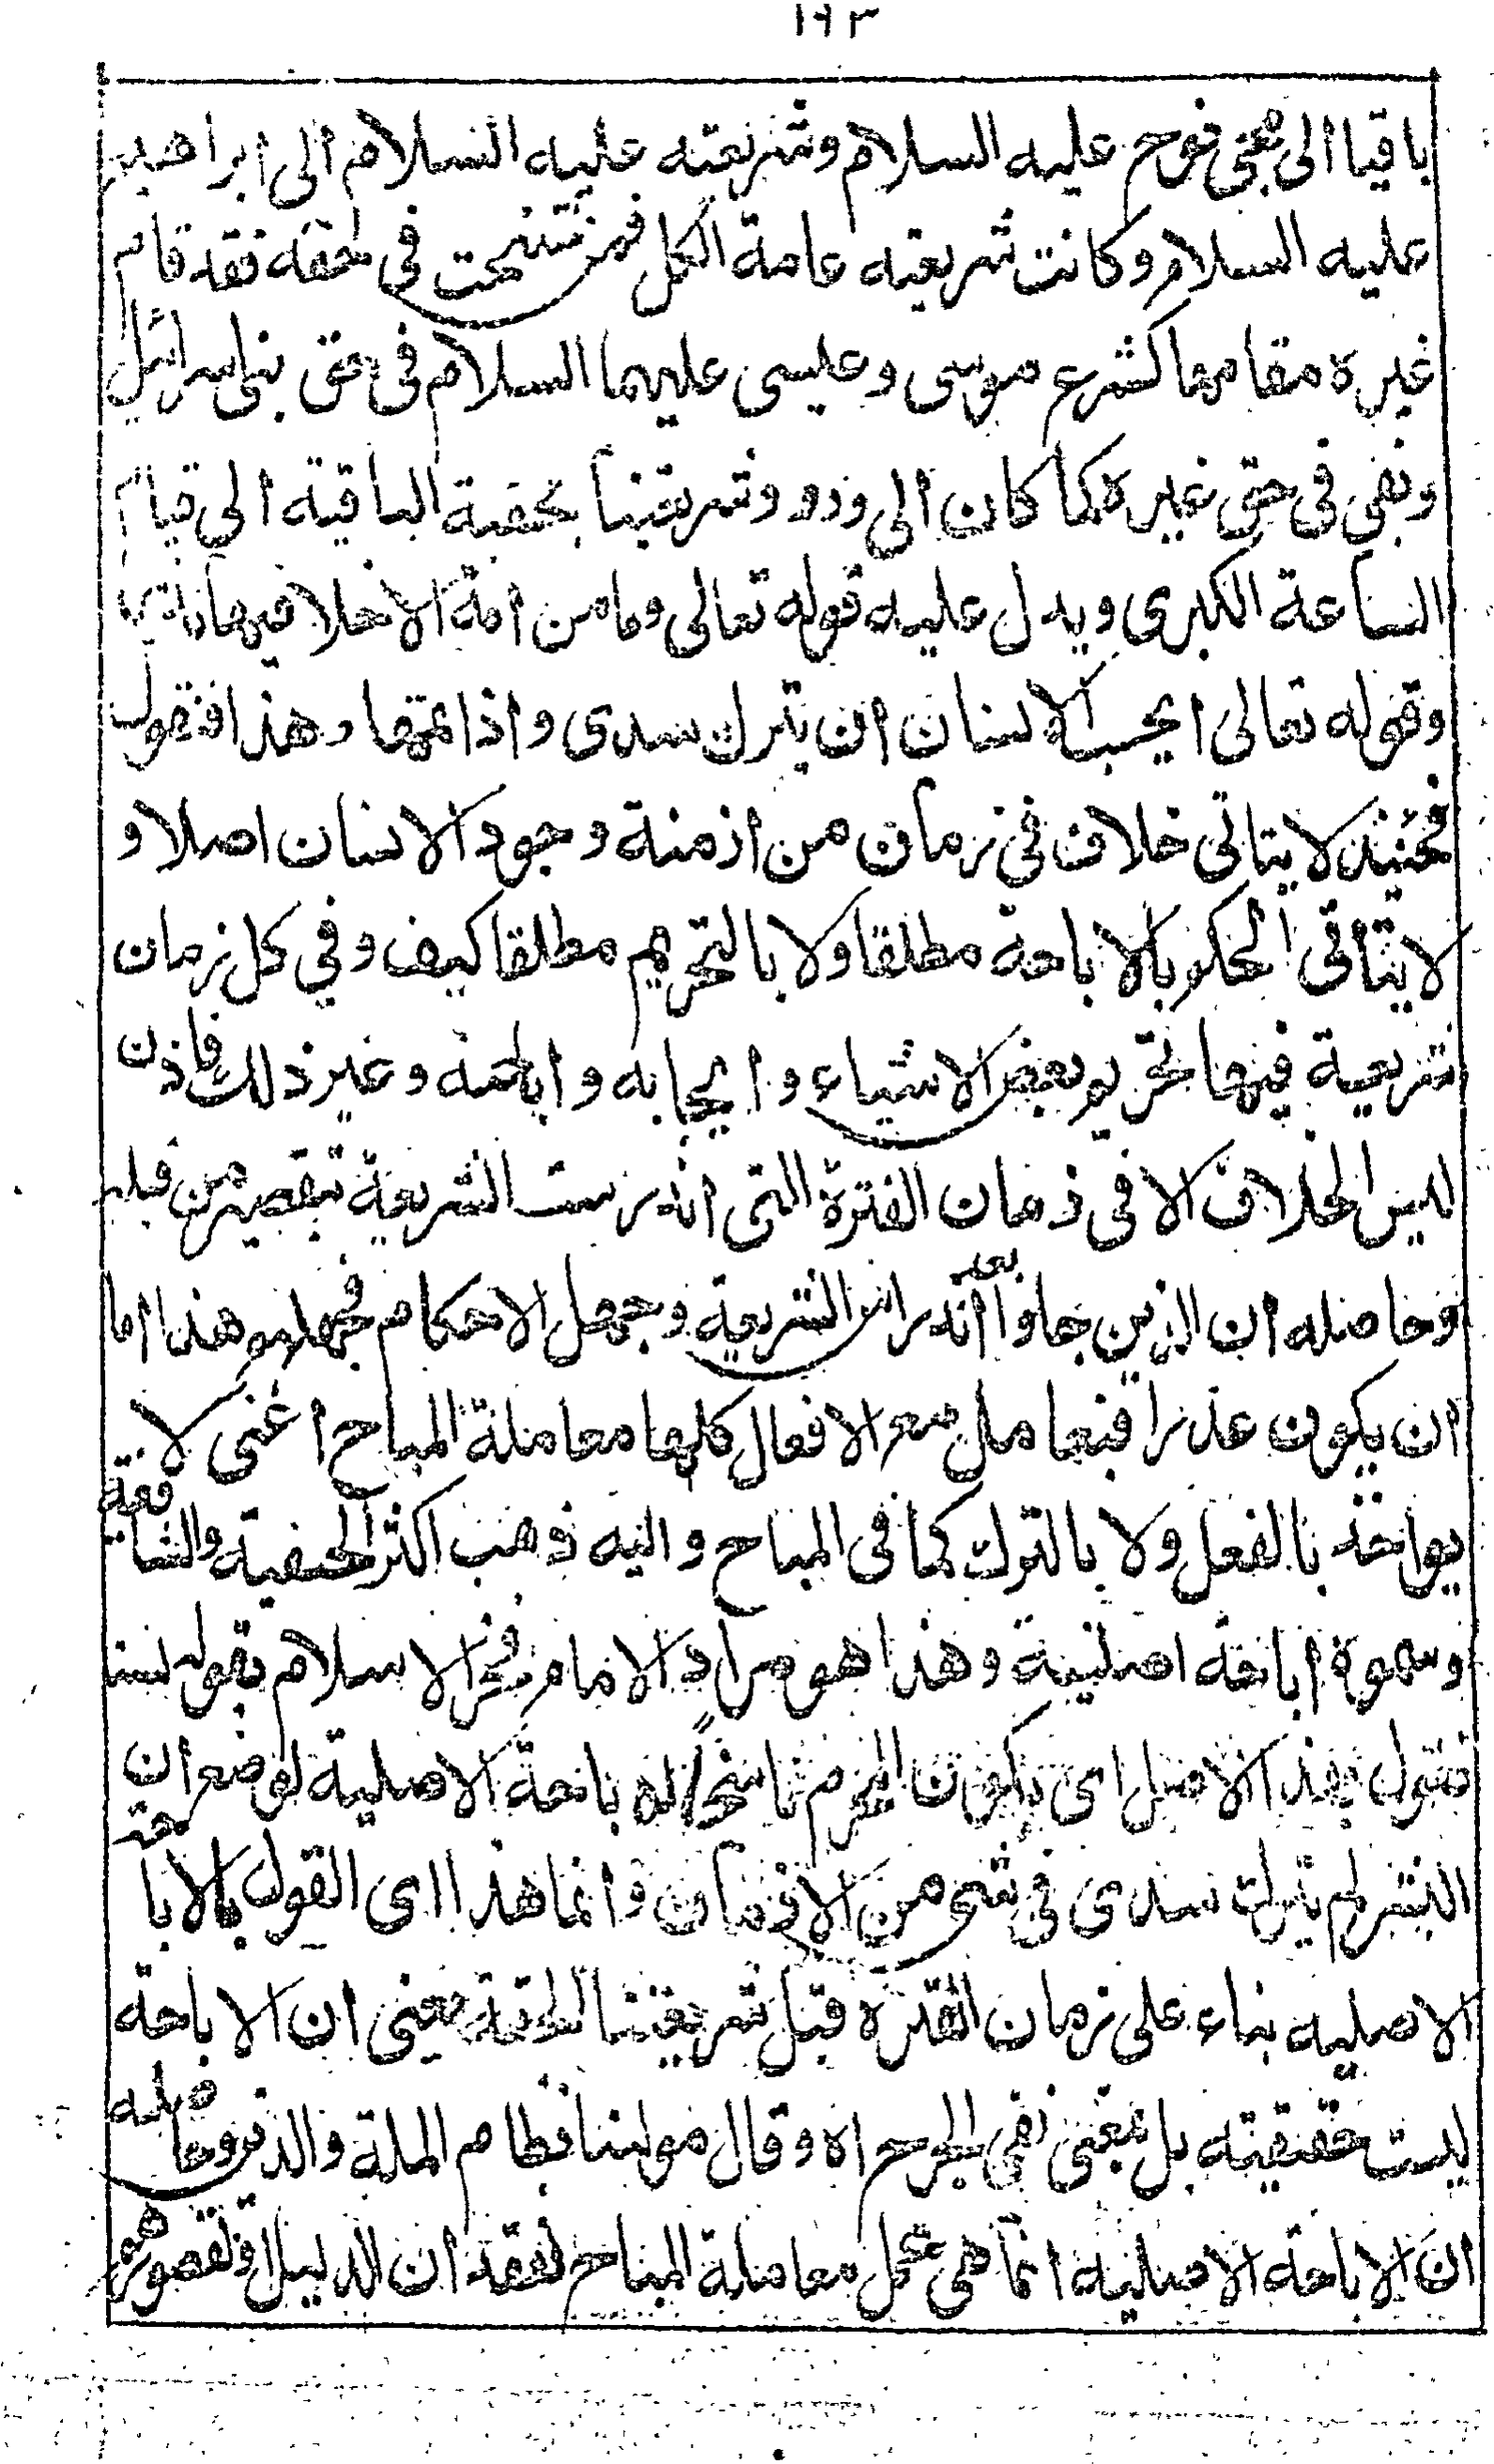 ١٩٣
باقيا الى مجئ نوح عليه السلام وشريعته عليه السلام الى ابراهيم
عليه السلام وكانت شريعته عامة الكل فمن نسخت فى حقه فقد قام
غيره مقامها كشرع موسى وعيسى عليهما السلام فى حق بنى اسرائيل
وبقى فى حق غيره كما كان الى ورود شريعتنا الحقة الباقية الى قيام
الساعة الكبرى ويدل عليه قوله تعالى وما من امة الا خلا فيها نذير
وقوله تعالى ايحسب الانسان ان يترك سدى واذا تمهد هذا فنقول
فحينئذ لا يتاتى خلاف في زمان من ازمنة وجود الانسان اصلا و
لا يتاتى الحكم بالاباحة مطلقا ولا بالتحريم مطلقا كيف وفي كل زمان
شريعة فيها تحريم بعض الاشياء وايجابه واباحته وغير ذلك فاذن
ليس الخلاف الا في زمان الفترة التى اندرست الشريعة بتقصير من قبلهم
وحاصله ان الذين جاؤا بعد اندراس الشريعة وجهل الاحكام فجهلهم هذا اما
ان يكون عذرا فيعامل مع الافعال كلها معاملة المباح اعنى لا
يواخذ بالفعل ولا بالترك كما فى المباح واليه ذهب اكثر الحنفية والشافعية
وسموه اباحة اصلية وهذا هو مراد الامام فخر الاسلام بقوله لسنا
نقول بهذا الاصل اى بكون المحرم ناسخا للاباحة الاصلية لوضع ان
البشر لم يترك سدى فى شئ من الازمان وانما هذا اى القول بالاباحة
الاصلية بناء على زمان الفترة قبل شريعتنا الحقة يعنى ان الاباحة
ليست حقيقية بل بمعنى نفى الحرج اه وقال مولينا نظام الملة والدين وحاصله
ان الاباحة الاصلية انما هى محل معاملة المباح لفقدان الدليل وقصورهم